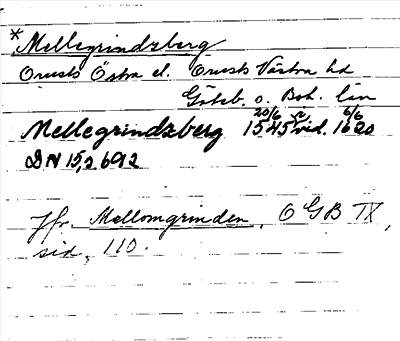 * Mellegrindzberg
Orusts Östra el. Orusts Västra hd
Göteb. o. Boh. län
Mellegrindzberg 20/6 1545 vid. 6/6 1620
DN 15,2 692
Jfr. Mellomgrinden, OGB IX,
sid. 110.